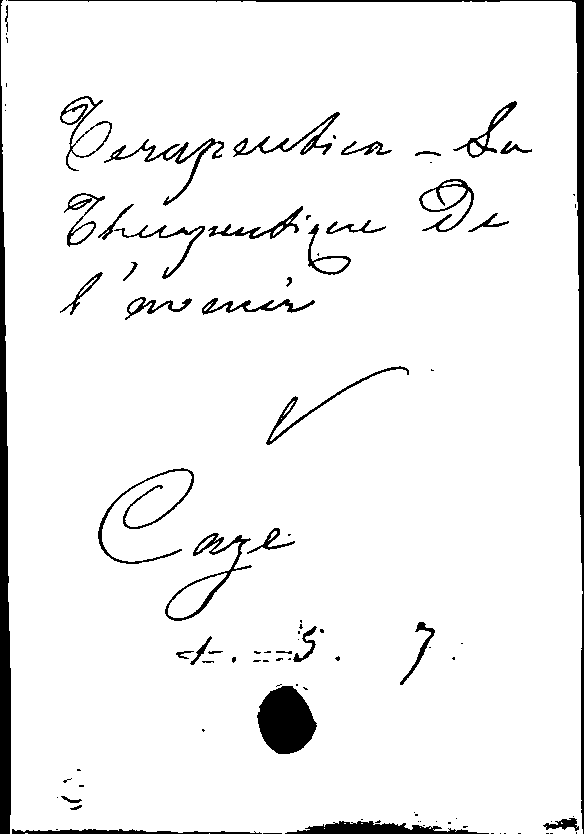 Terapeutica - La
Therapeutique De
l'avenir
Caze
1. 5. 7.